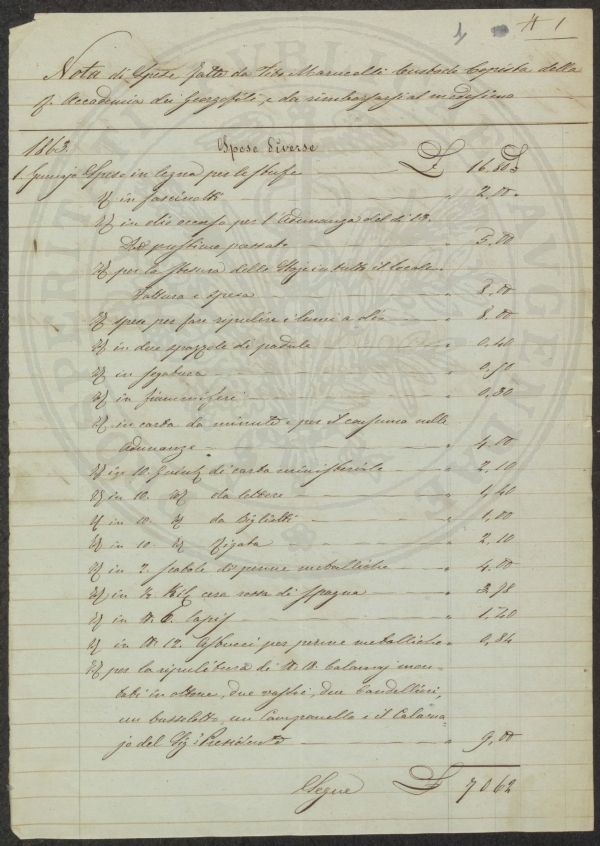 # 1
Nota di Spese fatte da Tito Marucelli Custode Copista della
R. Accademia dei Georgofili, e da rimborsarsi al medesimo
1863. Spese Diverse
1. Gennajo Spese in legna per le stufe £ 16.80
Id in fascinotti " 2,00.
Id in olio occorso per l'Adunanza del dì 13.
prossimo passato " 5.00
Id per la stesura delle Stoje in tutto il locale.
Fattura e spesa " 8.00
Id spese per fare ripulire i lumi a olio " 8.00
Id in due spazzole di padule " 0,40
Id in segatura " 0,50
Id in fiammiferi " 0,30
Id in carta da minute e per il consumo nelle
Adunanze " 4.00
Id in 10. Quint. di carta ministeriale " 2,10
Id in 10. Id da lettere " 1,40
Id in 10. Id da Biglietti " 1,00
Id in 10 Id Rigata " 2.10
Id in 2. scatole di penne metalliche " 4.00
Id in ½ Kil. cera rossa di Spagna " 3.98
Id in N. 6. lapis " 1,20
Id in N. 12. Astucci per penne metalliche " 0,84
Id per la ripulitura di N. Calamaj mon-
tati in ottone, due vassoi, due Candellieri,
un bussolotto, un Campanello e il Calama-
jo del Sig. Presidente " 9,00
Segue £ 70.62
PROSPERITATI PUBLICAE AUGENDAE